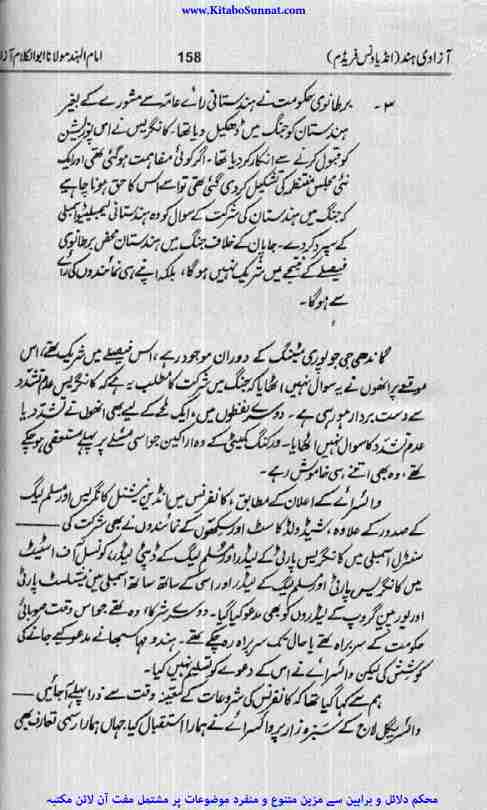 www.KitaboSunnat.com
آزادی ہند (انڈیا ونس فریڈم) 158 امام الہند مولانا ابوالکلام آزاد
۳- برطانوی حکومت نے ہندستانی رائے عامہ سے مشورے کے بغیر
ہندستان کو جنگ میں ڈھکیل دیا تھا۔ کانگریس نے اس پوزیشن
کو قبول کرنے سے انکار کر دیا تھا۔ اگر کوئی مفاہمت ہو گئی تھی اور ایک
نئی مجلس منتظمہ کی تشکیل کر دی گئی تھی تو اسے اس کا حق ہونا چاہیے
کہ جنگ میں ہندستان کی شرکت کے سوال کو وہ ہندستانی لیجسلیٹیو اسمبلی
کے سپرد کر دے۔ جاپان کے خلاف جنگ میں ہندستان محض برطانوی
فیصلے کے نتیجے میں شریک نہیں ہوگا، بلکہ اپنے ہی نمائندوں کی رائے
سے ہوگا۔
گاندھی جی جو پوری میٹنگ کے دوران موجود رہے، اس فیصلے میں شریک تھے، اس
موقعے پر انھوں نے یہ سوال نہیں اٹھایا کہ جنگ میں شرکت کا مطلب یہ ہے کہ کانگریس عدم تشدد
سے دست بردار ہو رہی ہے۔ دوسرے لفظوں میں، ایک لمحے کے لیے بھی انھوں نے تشدد یا
عدم تشدد کا سوال نہیں اٹھایا۔ ورکنگ کمیٹی کے وہ اراکین جو اسی مسئلے پر پہلے مستعفی ہو چکے
تھے، وہ بھی اتنے ہی خاموش رہے۔
وائسرائے کے اعلان کے مطابق، کانفرنس میں انڈین نیشنل کانگریس اور مسلم لیگ
کے صدور کے علاوہ، شیڈولڈ کاسٹ اور سکھوں کے نمائندوں نے بھی شرکت کی ــــ
سنٹرل اسمبلی میں کانگریس پارٹی کے لیڈر اور مسلم لیگ کے ڈپٹی لیڈر، کونسل آف اسٹیٹ
میں کانگریس پارٹی اور مسلم لیگ کے لیڈر اور اسی کے ساتھ ساتھ اسمبلی میں نیشنلسٹ پارٹی
اور یورپین گروپ کے لیڈروں کو بھی مدعو کیا گیا۔ دوسرے شرکا، وہ تھے جو اس وقت صوبائی
حکومت کے سربراہ تھے یا حال تک سربراہ رہ چکے تھے۔ ہندو مہا سبھا نے مدعو کیے جانے کی
کوشش کی لیکن وائسرائے نے اس کے دعوے کو تسلیم نہیں کیا۔
ہم سے کہا گیا تھا کہ کانفرنس کی شروعات کے معینہ وقت سے ذرا پہلے آجائیں ــــ
وائسریگل لاج کے سبزہ زار پر وائسرائے نے ہمارا استقبال کیا، جہاں ہمارا رسمی تعارف بھی
محکم دلائل و براہین سے مزین متنوع و منفرد موضوعات پر مشتمل مفت آن لائن مکتبہ